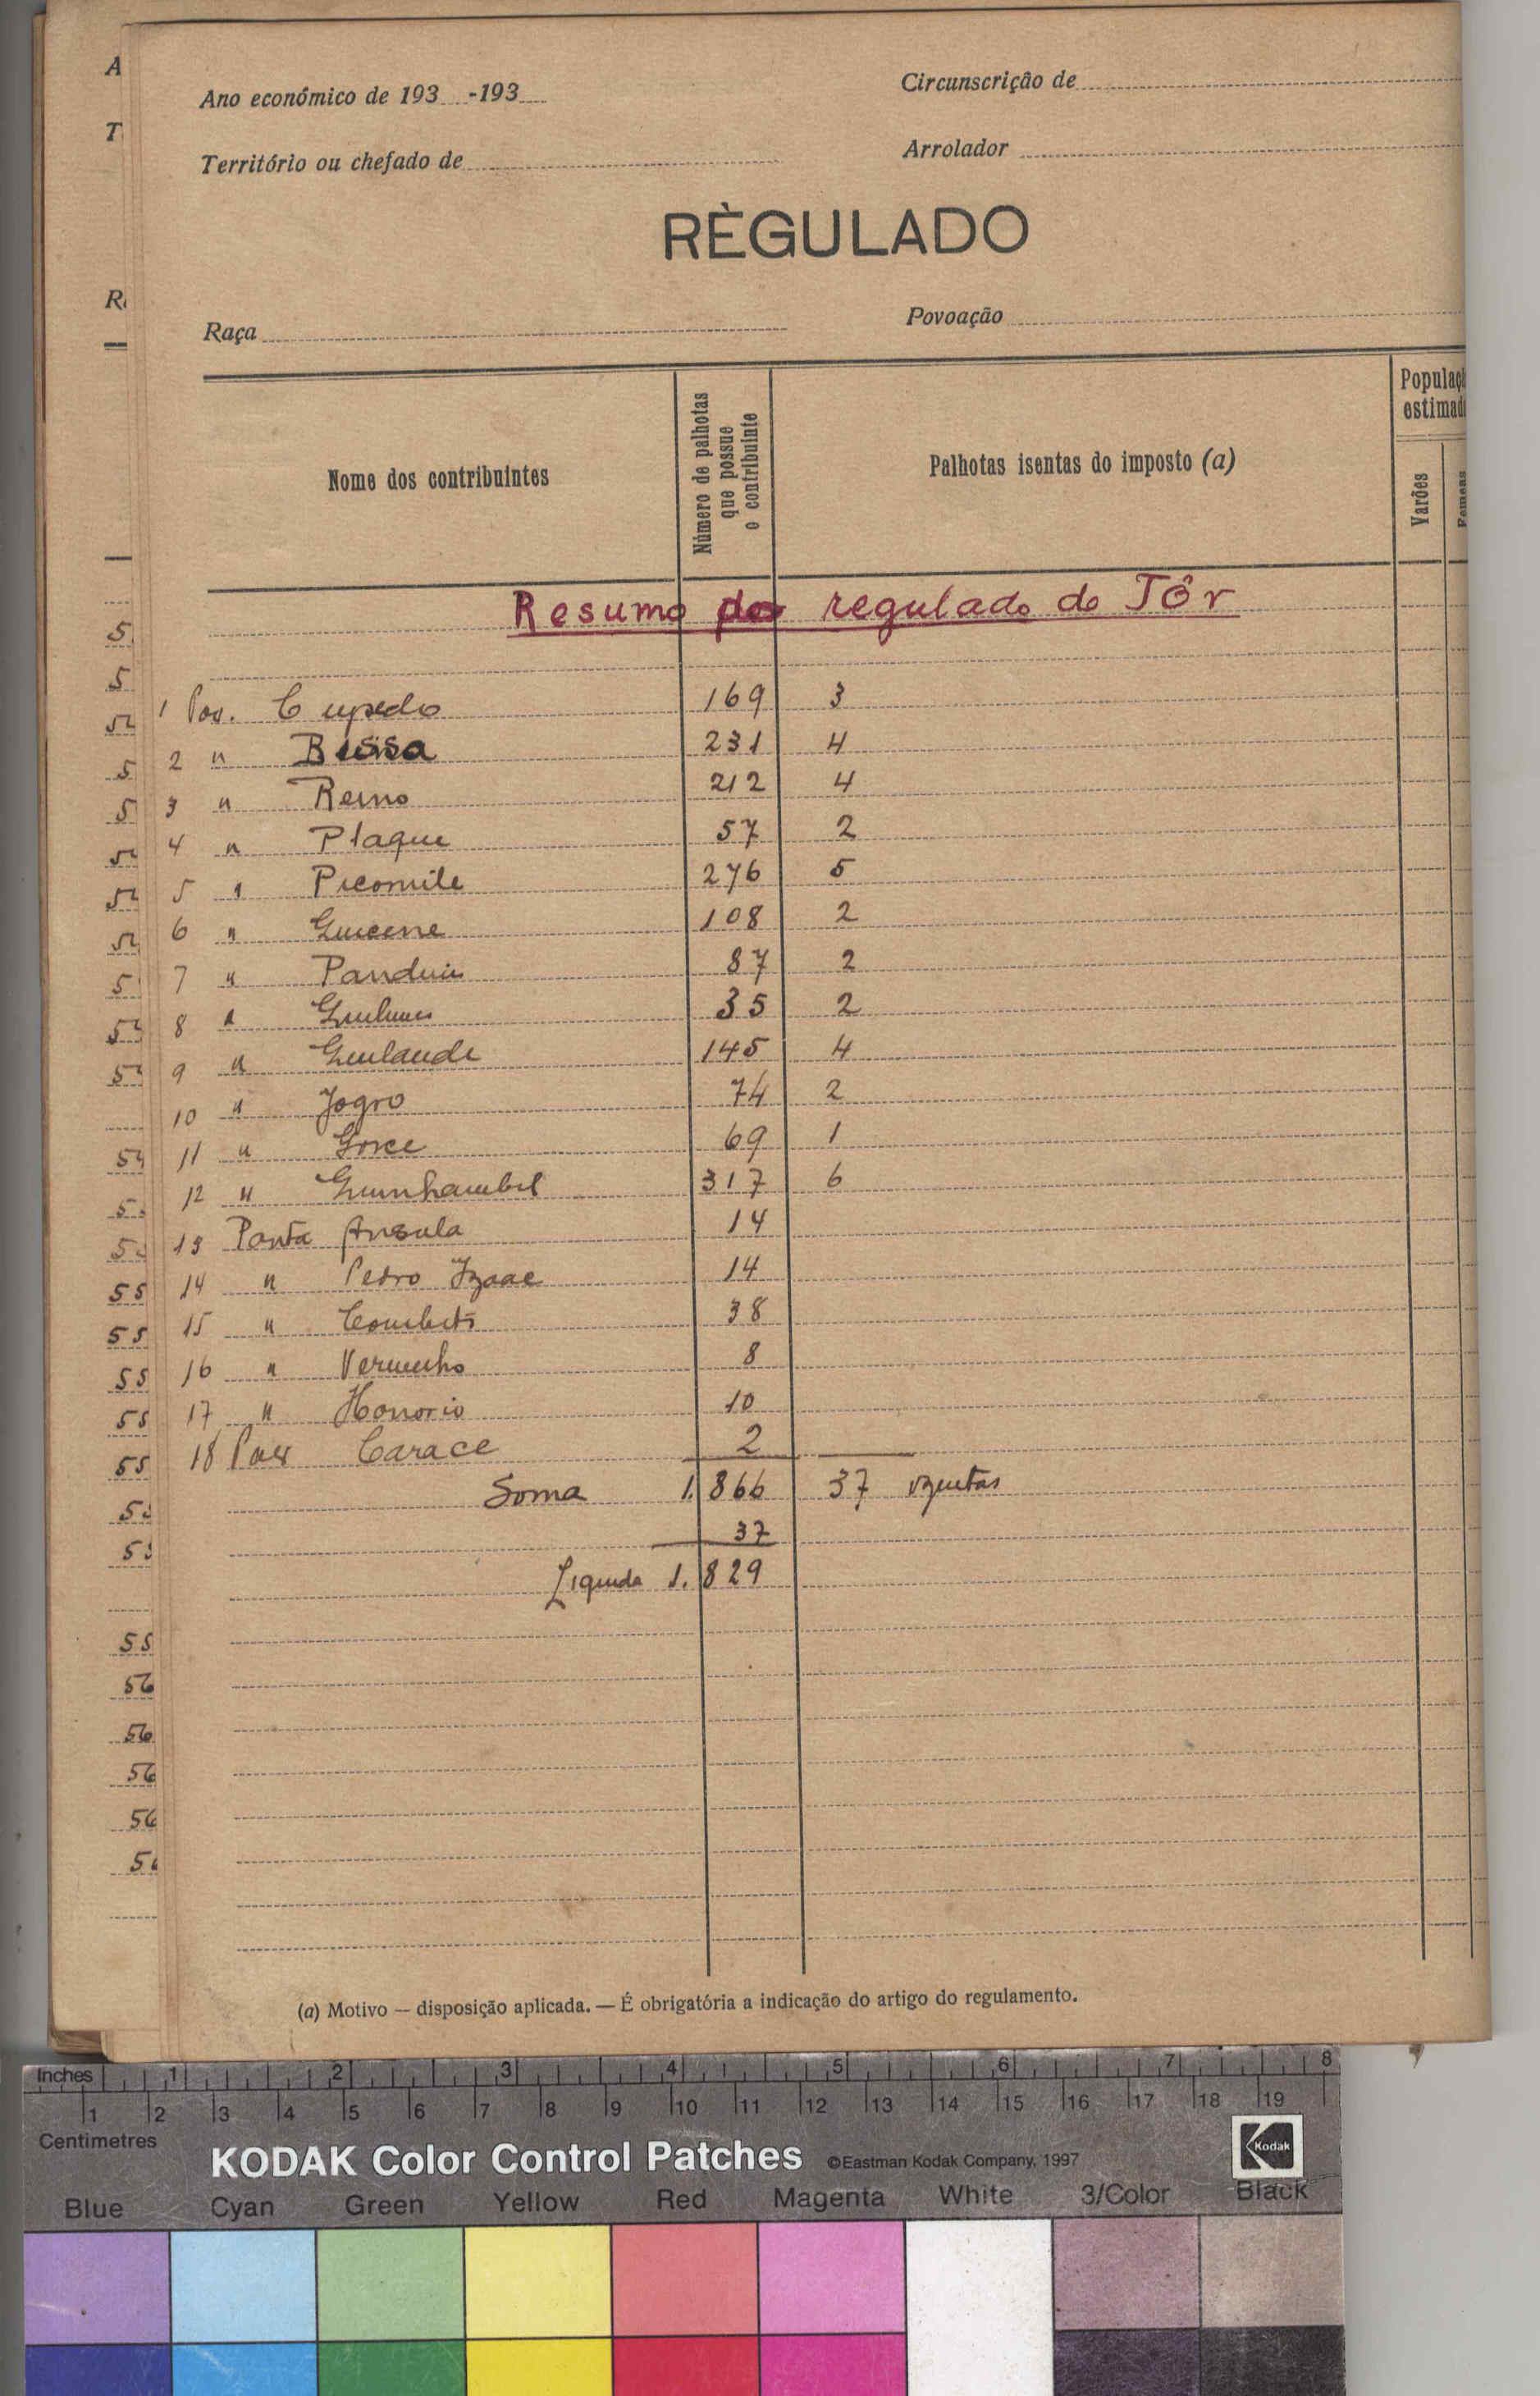 Ano económico de 193 -193
Circunscrição de
Território ou chefado de
Arrolador
RÈGULADO
Raça
Povoação
Nome dos contribuintes
Número de palhotas que possue o contribuinte
Palhotas isentas do imposto (a)
Populaçã
estimad
Varões
Resumo do regulado de Tôr
1 Pov. Cupedo 169 3
2 " Bissa 231 4
3 " Reino 212 4
4 " Plaque 57 2
5 " Picomile 276 5
6 " Guicene 108 2
7 " Panduis 87 2
8 " 35 2
9 " Guilaude 145 4
10 " Jogro 74 2
11 " Gorce 69 1
12 " Guinhambel 317 6
13 Ponta Ansula 14
14 " Pedro Izaac 14
15 " 38
16 " Vermelho 8
17 " Honorio 10
18 Pov Carace 2
Soma 1.866 37 izentas
37
Liquida 1.829
(a) Motivo — disposição aplicada. — É obrigatória a indicação do artigo do regulamento.
Inches 1 2 3 4 5 6 7 8
1 2 3 4 5 6 7 8 9 10 11 12 13 14 15 16 17 18 19
Centimetres
KODAK Color Control Patches ©Eastman Kodak Company, 1997 Kodak
Blue Cyan Green Yellow Red Magenta White 3/Color Black